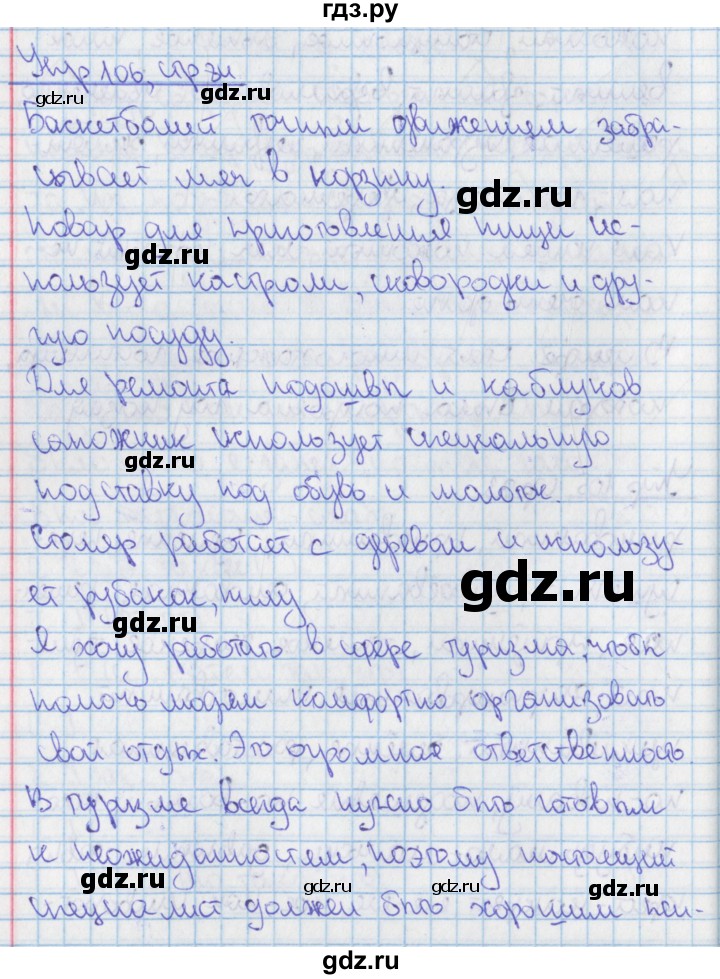 гдз.ру
Упр 106, стр 31
gdz.ru
gdz.ru
Баскетболист точным движением забра-
сывает мяч в корзину.
gdz.ru
Повар для приготовления пищи ис-
gdz.ru
пользует кастрюли, сковородки и дру-
гую посуду.
gdz.ru
Для ремонта подошвы и каблуков
сапожник использует специальную
gdz.ru
подставку под обувь и молоток.
Столяр работает с деревом и использу-
gdz.ru
ет рубанок, пилу
gdz.ru
Я хочу работать в сфере туризма, чтобы
помочь людям комфортно организовать
свой отдых. Это огромная ответственность.
В туризме всегда нужно быть готовым
к неожиданностям, поэтому настоящий
gdz.ru
gdz.ru
gdz.ru
gdz.ru
специалист должен быть хорошим пси-
gdz.ru